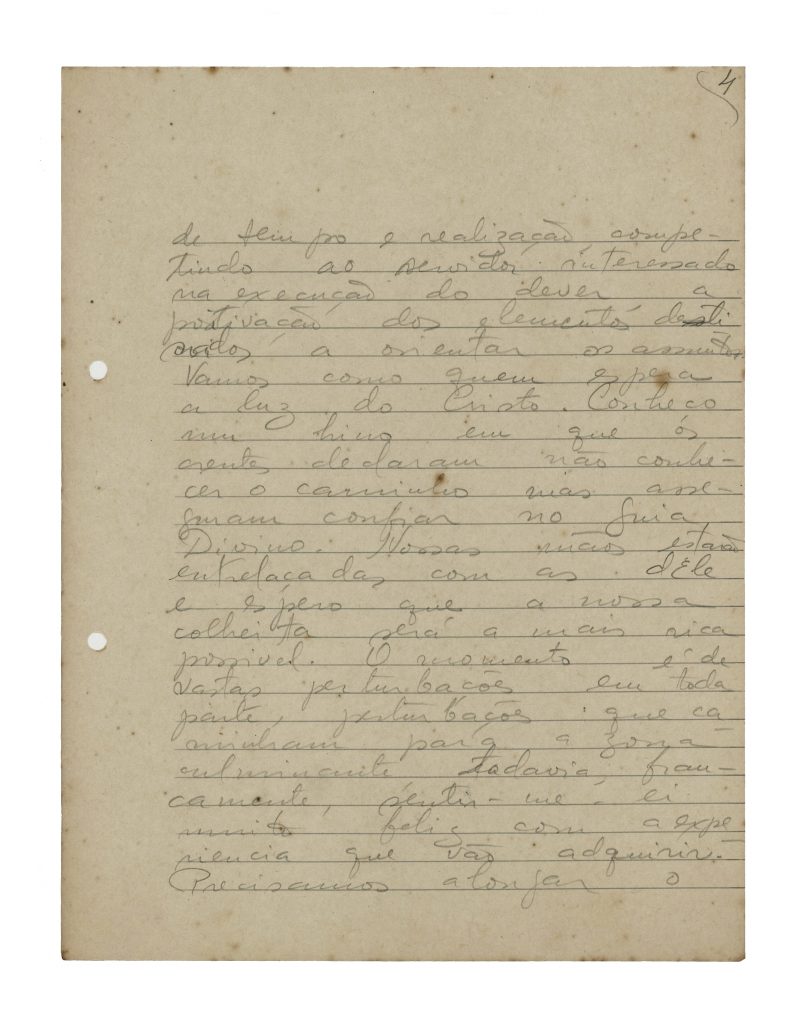 4
de tempo e realização, compe-
tindo ao servidor interessado
na execução do dever a
positivação dos elementos desti
nados a orientar os assuntos.
Vamos como quem espera
a luz do Cristo. Conheço
um hino em que os
crentes declaram não conhe-
cer o caminho mas asse-
guram confiar no Guia
Divino. Nossas mãos estarão
entrelaçadas com as dEle
e espero que a nossa
colheita será a mais rica
possivel. O momento é de
vastas perturbações em toda
parte, perturbações que ca
minham para a zona
culminante todavia, fran-
camente, sentir-me-ei
muito feliz com a expe
riencia que vão adquirir.
Precisamos alongar o